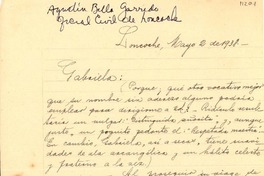 Agustín Bello Garrido
Oficial Civil de Loncoche
Loncoche, Mayo 2 de 1938.-
Gabriela:
(Porque, qué otro vocativo mejor
que su nombre sin adioses alguno podría
emplear para dirigirme a Ud.? Ridículo resul-
taría un vulgar "distinguida señorita" y, aunque
justo, un poquito pedante el "respetada maestra".
En cambio, Gabriela, así a secas, tiene suavi-
dades de ala arcangélica y un hálito celeste
y fraterno a la vez)